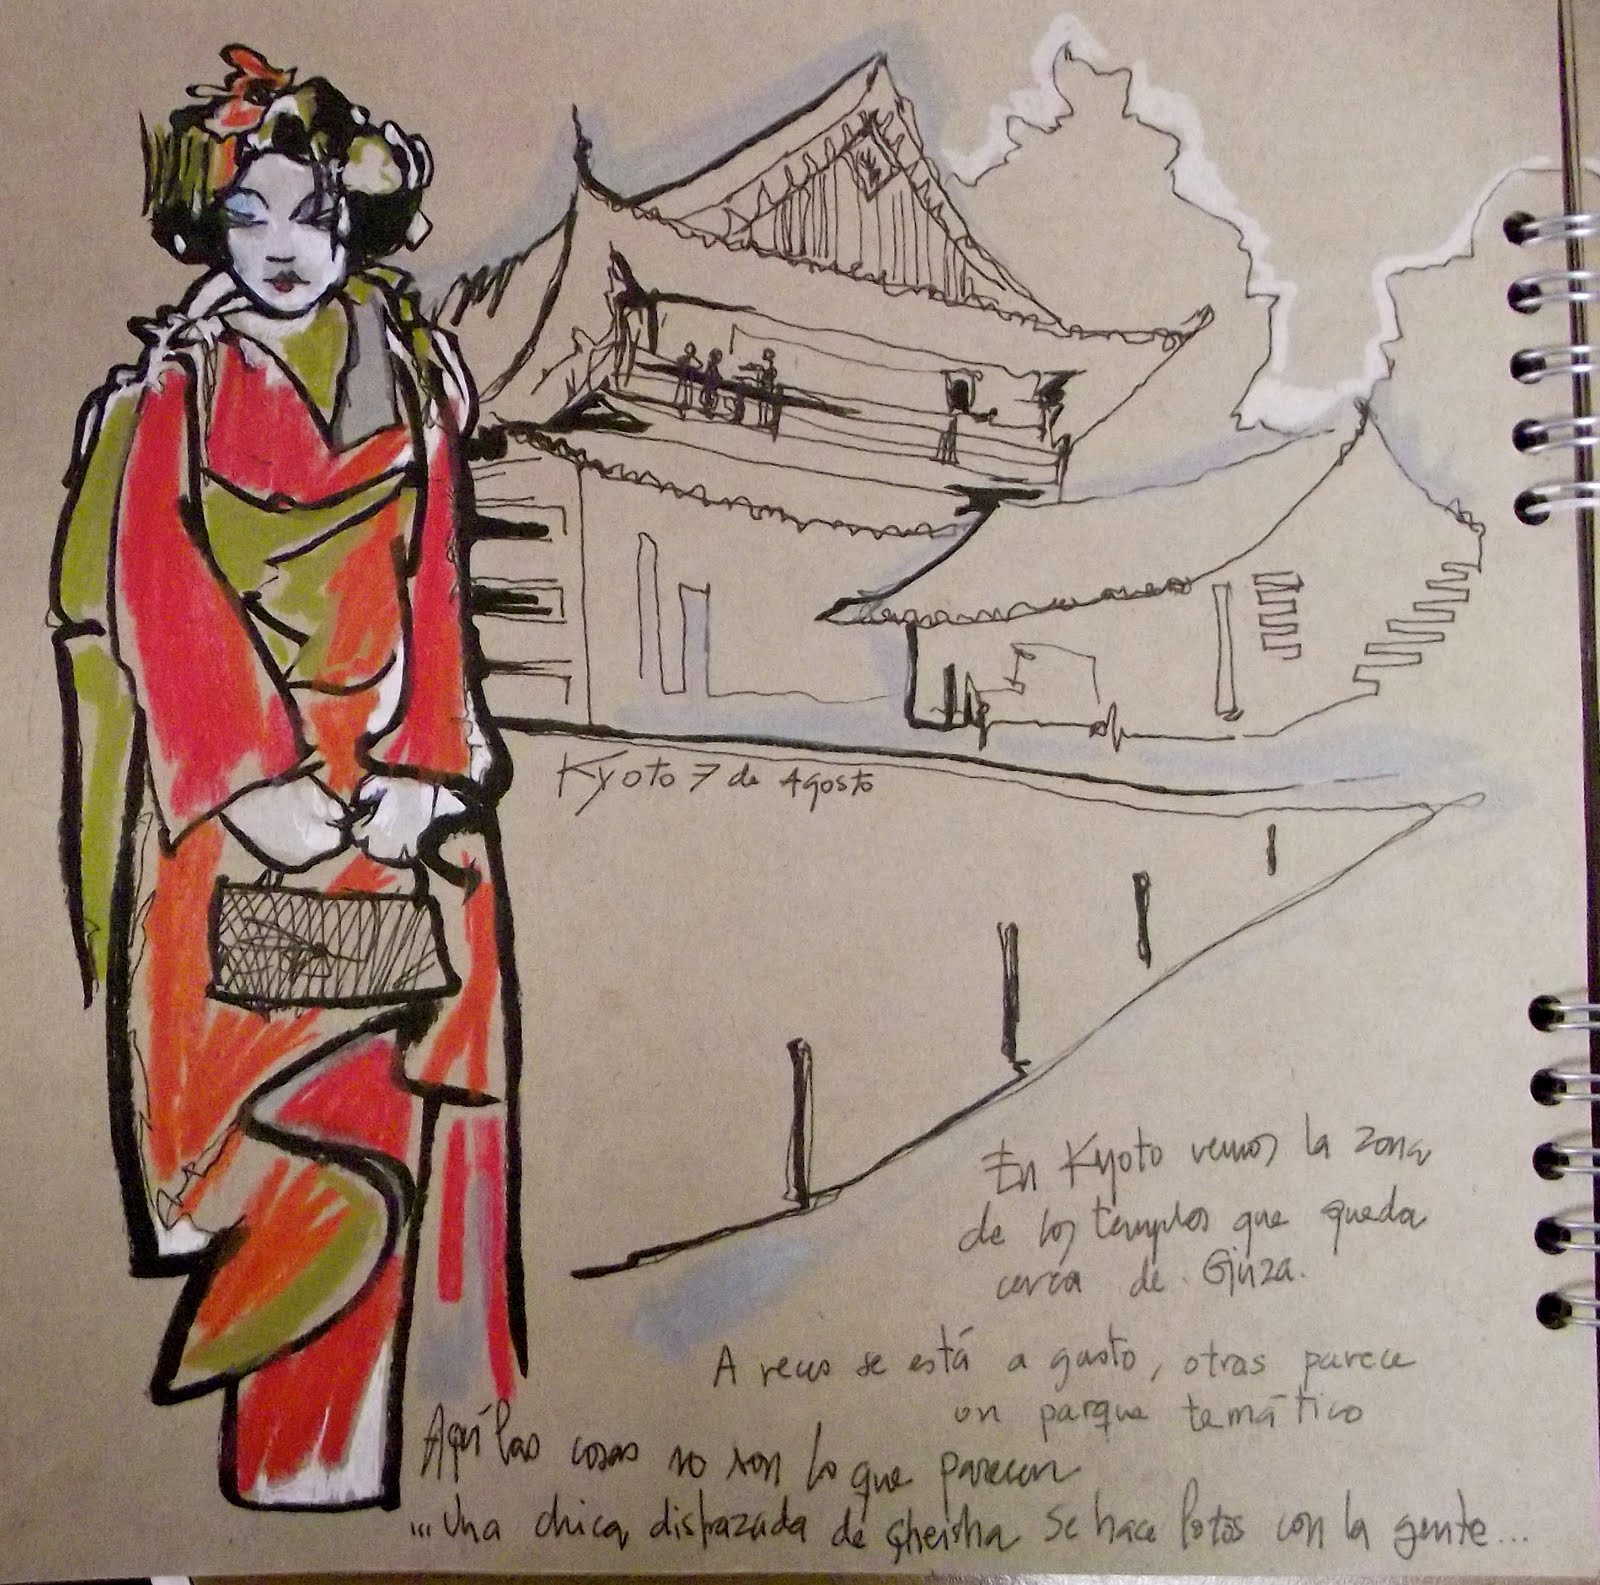 Kyoto 7 de Agosto
En Kyoto vemos la zona
de los templos que queda
cerca de Ginza.
A veces se está a gusto, otras parece
un parque temático
Aquí las cosas no son lo que parecen
...Una chica disfrazada de gheisha se hace fotos con la gente...